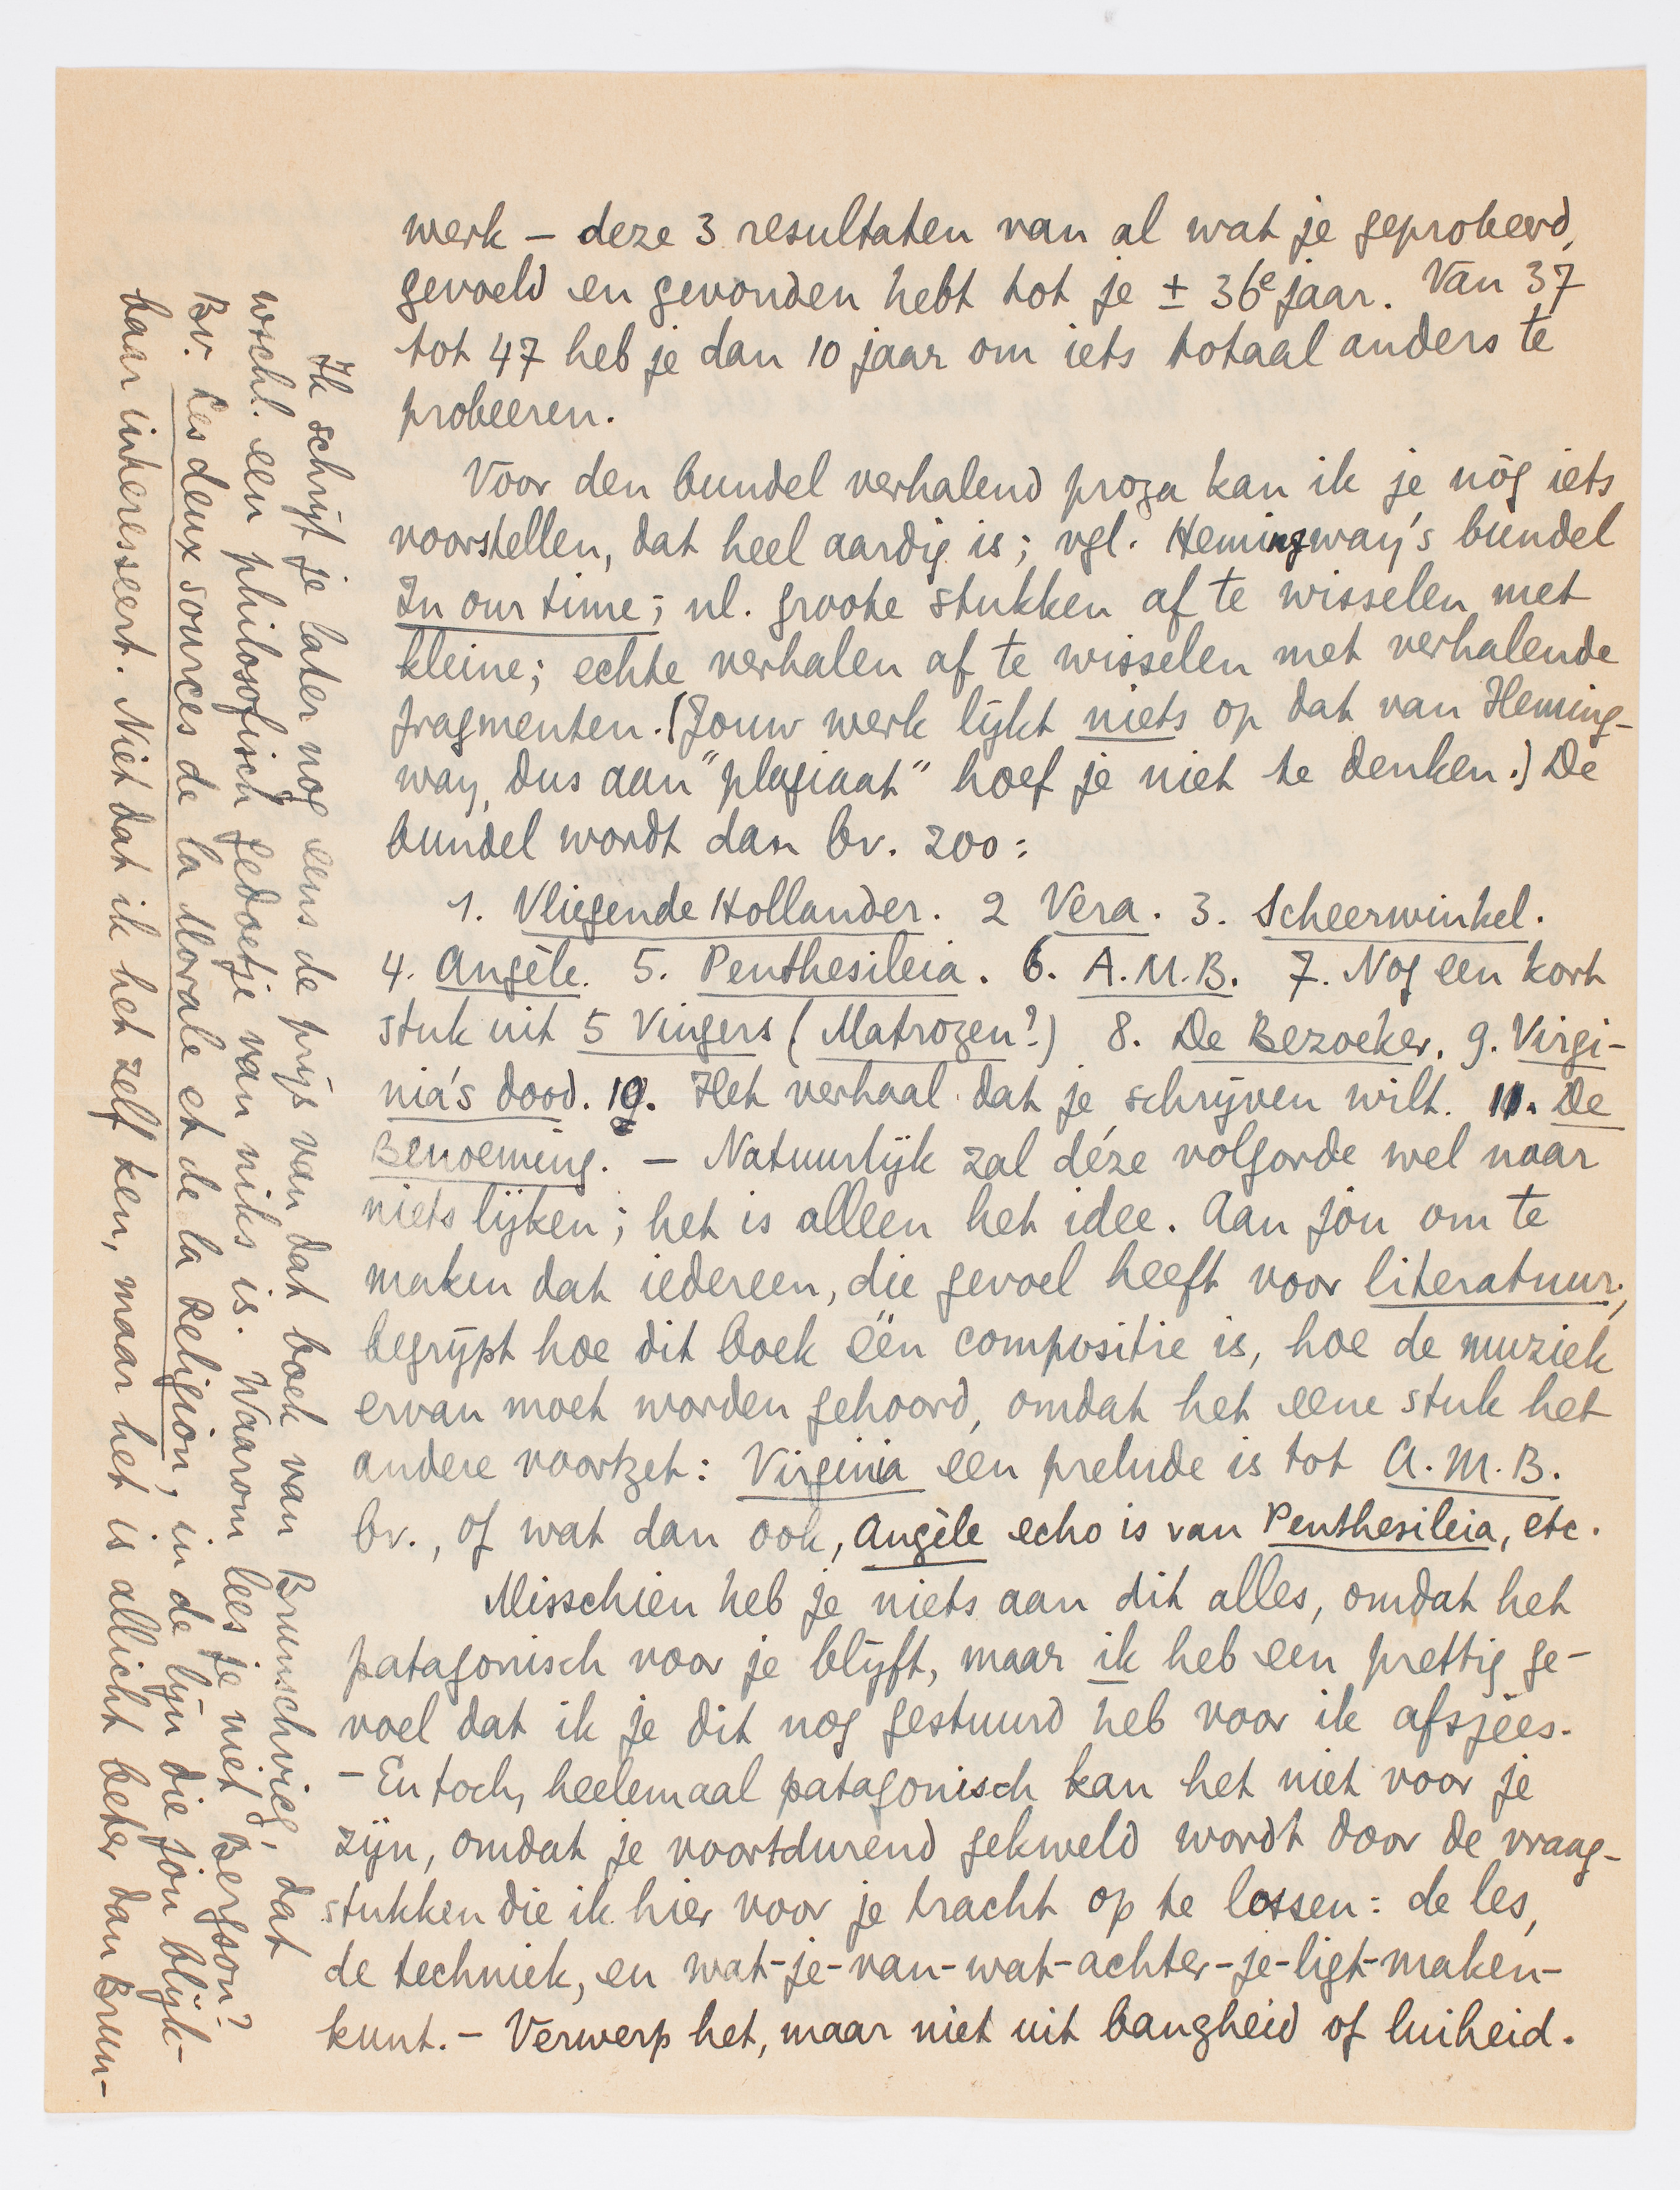 werk – deze 3 resultaten van al wat je geprobeerd,
gevoeld en gevonden hebt tot je ± 36e jaar. Van 37
tot 47 heb je dan 10 jaar om iets totaal anders te
probeeren.
Voor den bundel verhalend proza kan ik je nòg iets
voorstellen, dat heel aardig is; vgl. Hemingway's bundel
In our time; nl. groote stukken af te wisselen met
kleine; echte verhalen af te wisselen met verhalende
fragmenten. (Jouw werk lijkt niets op dat van Heming-
way, dus aan "plagiaat" hoef je niet te denken.) De
bundel wordt dan bv. zoo:
1. Vliegende Hollander. 2 Vera. 3. Scheerwinkel.
4. Angèle. 5. Penthesileia. 6. A.M.B. 7. Nog een kort
stuk uit 5 Vingers (Matrozen?) 8. De Bezoeker. 9. Virgi-
nia's dood. 10. Het verhaal dat je schrijven wilt. 11. De
Benoeming. – Natuurlijk zal déze volgorde wel naar
niets lijken; het is alleen het idee. Aan jou om te
maken dat iedereen, die gevoel heeft voor literatuur,
begrijpt hoe dit boek één compositie is, hoe de muziek
ervan moet worden gehoord, omdat het eene stuk het
andere voortzet: Virginia een prelude is tot A.M.B.
bv., of wat dan ook, Angèle echo is van Penthesileia, etc.
Misschien heb je niets aan dit alles, omdat het
patagonisch voor je blijft, maar ik heb een prettig ge-
voel dat ik je dit nog gestuurd heb voor ik afsjees.
– En toch, heelemaal patagonisch kan het niet voor je
zijn, omdat je voortdurend gekweld wordt door de vraag-
stukken die ik hier voor je tracht op te lossen: de les,
de techniek, en wat-je-van-wat-achter-je-ligt-maken-
kunt. – Verwerp het, maar niet uit bangheid of luiheid.
Ik schrijf je later nog eens de prijs van dat boek van Brunschvicg, dat
wschl. een philosofisch gedoetje van niks is. Waarom lees je niet Bergson?
Bv. Les deux sources de la Morale et de la Religion, in de lijn die jou blijk-
baar interesseert. Niet dat ik het zelf ken, maar het is allicht beter dan Brun-